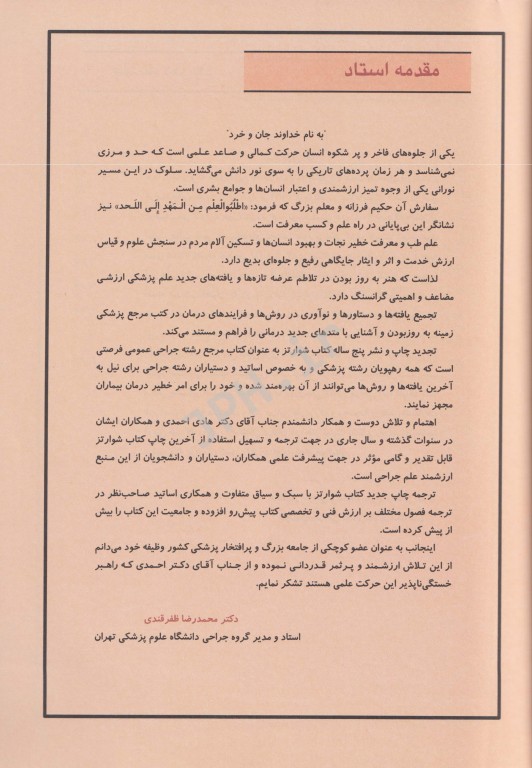 مقدمه استاد
"به نام خداوند جان و خرد"
یکی از جلوه‌های فاخر و پر شکوه انسان حرکت کمالی و صاعد علمی است که حد و مرزی
نمی‌شناسد و هر زمان پرده‌های تاریکی را به سوی نور دانش می‌گشاید. سلوک در این مسیر
نورانی یکی از وجوه تمیز ارزشمندی و اعتبار انسان‌ها و جوامع بشری است.
سفارش آن حکیم فرزانه و معلم بزرگ که فرمود: «اطْلُبُوالعِلْم مِن الْـمَهْدِ إِلَی اللَـحد» نیز
نشانگر این بی‌پایانی در راه علم و کسب معرفت است.
علم طب و معرفت خطیر نجات و بهبود انسان‌ها و تسکین آلام مردم در سنجش علوم و قیاس
ارزش خدمت و اثر و ایثار جایگاهی رفیع و جلوه‌ای بدیع دارد.
لذاست که هنر به روز بودن در تلاطم عرضه تازه‌ها و یافته‌های جدید علم پزشکی ارزشی
مضاعف و اهمیتی گرانسنگ دارد.
تجمیع یافته‌ها و دستاورها و نوآوری در روش‌ها و فرایندهای درمان در کتب مرجع پزشکی
زمینه به روزبودن و آشنایی با متدهای جدید درمانی را فراهم و مستند می‌کند.
تجدید چاپ و نشر پنج ساله کتاب شوارتز به عنوان کتاب مرجع رشته جراحی عمومی فرصتی
است که همه رهپویان رشته پزشکی و به خصوص اساتید و دستیاران رشته جراحی برای نیل به
آخرین یافته‌ها و روش‌ها می‌توانند از آن بهره‌مند شده و خود را برای امر خطیر درمان بیماران
مجهز نمایند.
اهتمام و تلاش دوست و همکار دانشمندم جناب آقای دکتر هادی احمدی و همکاران ایشان
در سنوات گذشته و سال جاری در جهت ترجمه و تسهیل استفاده از آخرین چاپ کتاب شوارتز
قابل تقدیر و گامی مؤثر در جهت پیشرفت علمی همکاران، دستیاران و دانشجویان از این مـنبع
ارزشمند علم جراحی است.
ترجمه چاپ جدید کتاب شوارتز با سبک و سیاق متفاوت و همکاری اساتید صاحب‌نظر در
ترجمه فصول مختلف بر ارزش فنی و تخصصی کتاب پیش‌رو افزوده و جامعیت این کتاب را بیش
از پیش کرده است.
اینجانب به عنوان عضو کوچکی از جامعه بزرگ و پرافتخار پزشکی کشور وظیفه خود می‌دانم
از این تلاش ارزشمند و پرثمر قدردانی نموده و از جناب آقای دکتر احمدی که راهبر
خستگی‌ناپذیر این حرکت علمی هستند تشکر نمایم.
دکتر محمدرضا ظفرقندی
استاد و مدیر گروه جراحی دانشگاه علوم پزشکی تهران